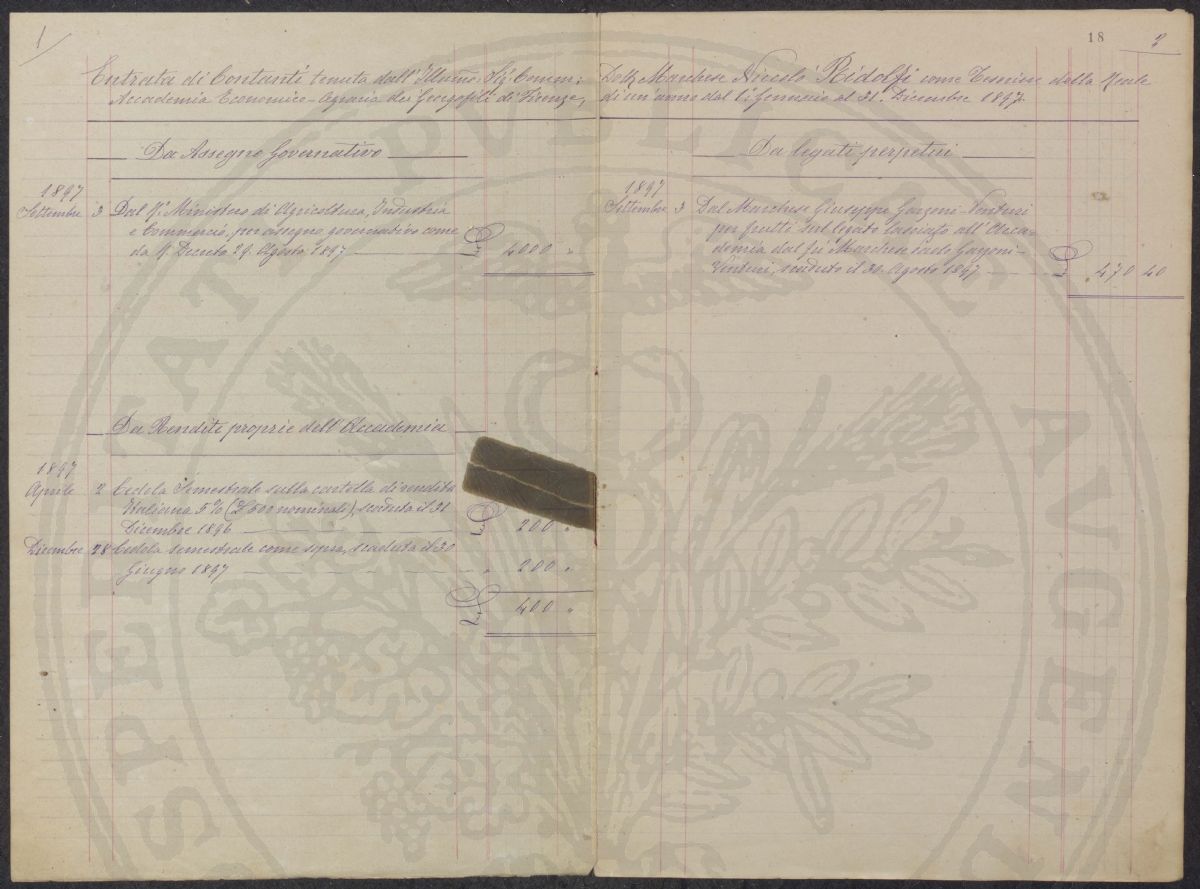 1
Entrata di Contanti tenuta dall' Illustmo: Sigr Comm:
Accademia Economico-Agraria dei Georgofili di Firenze,
Da Assegno Governativo
1897
Settembre 3 Dal R. Ministero di Agricoltura, Industria
e Commercio, per assegno governativo come
da R. Decreto 29. Agosto 1897 £ 4000 "
Da Rendite proprie dell' Accademia
1897
Aprile 2 Cedola Semestrale sulla cartella di rendita
Italiana 5% (£ 500 nominale), scaduta il 31
Dicembre 1896 £ 200 "
Dicembre 28 Cedola semestrale come sopra, scaduta il 30
Giugno 1897 " 200 "
£ 400 "
18
2
Dottr. Marchese Niccolò Ridolfi come Tesoriere della Reale
di un'anno dal 1°. Gennaio al 31. Dicembre 1897.
Da legati perpetui
1897
Settembre 3 Dal Marchese Giuseppe Garzoni-Venturi
per frutti sul legato lasciato all' Acca-
demia dal fù Marchese Garzoni-
Venturi, scaduto il 30. Agosto 1897 £ 470 40
PUBLICAE
SPERITATI
AVGENDAE